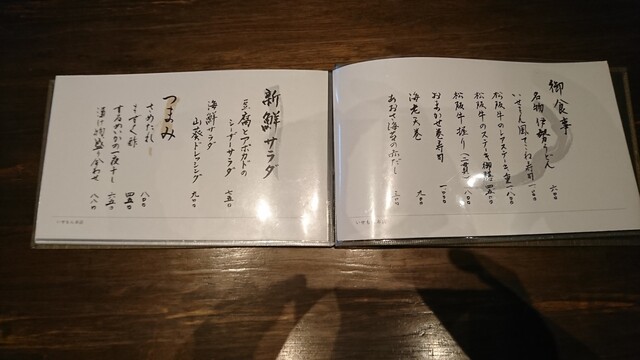 御食事
名物 伊勢うどん 六〇〇
いせえん風てこね寿司
松阪牛のレアステーキ重 一八〇〇
松阪牛のステーキ御膳 四五〇〇
松阪牛握り（二貫） 八〇〇
おまかせ巻寿司 一〇〇〇
海老天巻 九〇〇
あおさ海苔の赤だし 三〇〇
新鮮サラダ
豆腐とアボカドの
シーザーサラダ 七五〇
海鮮サラダ
山葵ドレッシング 九〇〇
つまみ
さめたれ 八〇〇
もずく酢 四五〇
するめいかの一夜干し 六五〇
漬け物盛り合わせ 八八〇